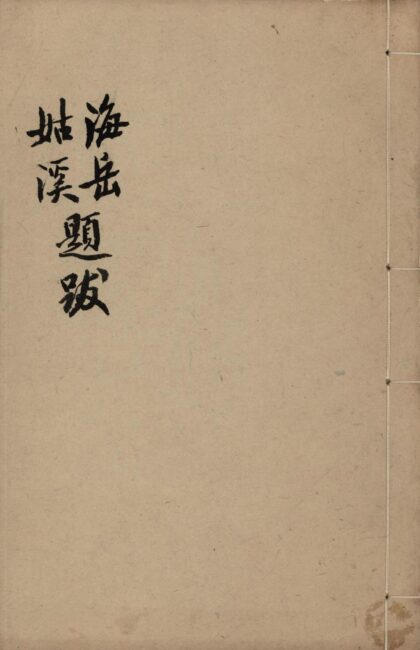 海岳
姑溪
題跋